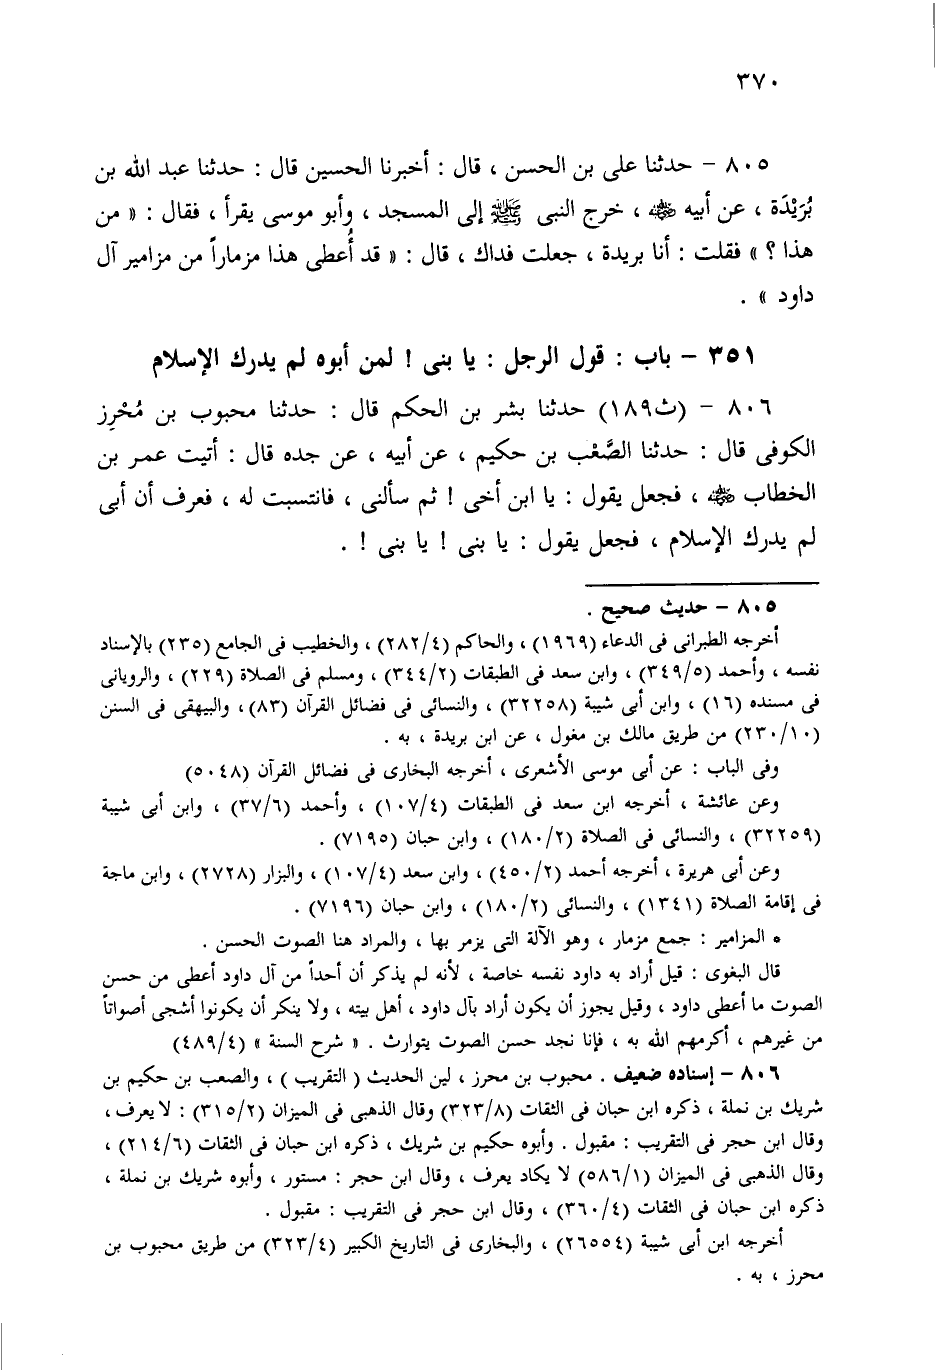 ٣٧٠
٨٠٥ - حدثنا على بن الحسن ، قال : أخبرنا الحسين قال : حدثنا عبد الله بن
بُرَيْدَة ، عن أبيه ﷺ ، خرج النبى ﷺ إلى المسجد ، وأبو موسى يقرأ ، فقال : « من
هذا ؟ » فقلت : أنا بريدة ، جعلت فداك ، قال : « قد أُعطى هذا مزماراً من مزامير آل
داود » .
٣٥١ - باب : قول الرجل : يا بنى ! لمن أبوه لم يدرك الإسلام
٨٠٦ - (ث١٨٩) حدثنا بشر بن الحكم قال : حدثنا محبوب بن مُحْرِز
الكوفى قال : حدثنا الصَّعْب بن حكيم ، عن أبيه ، عن جده قال : أتيت عمر بن
الخطاب ﷺ ، فجعل يقول : يا ابن أخى ! ثم سألنى ، فانتسبت له ، فعرف أن أبى
لم يدرك الإسلام ، فجعل يقول : يا بنى ! يا بنى ! .
٨٠٥ - حديث صحيح .
أخرجه الطبرانى فى الدعاء (١٩٦٩) ، والحاكم (٢٨٢/٤) ، والخطيب فى الجامع (٢٣٥) بالإسناد
نفسه ، وأحمد (٣٤٩/٥) ، وابن سعد فى الطبقات (٣٤٤/٢) ، ومسلم فى الصلاة (٢٢٩) ، والرويانى
فى مسنده (١٦) ، وابن أبى شيبة (٣٢٢٥٨) ، والنسائى فى فضائل القرآن (٨٣)، والبيهقى فى السنن
(٢٣٠/١٠) من طريق مالك بن مغول ، عن ابن بريدة ، به .
وفى الباب : عن أبى موسى الأشعرى ، أخرجه البخارى فى فضائل القرآن (٥٠٤٨)
وعن عائشة ، أخرجه ابن سعد فى الطبقات (١٠٧/٤) ، وأحمد (٣٧/٦) ، وابن أبى شيبة
(٣٢٢٥٩) ، والنسائى فى الصلاة (١٨٠/٢) ، وابن حبان (٧١٩٥) .
وعن أبى هريرة ، أخرجه أحمد (٤٥٠/٢) ، وابن سعد (١٠٧/٤) ، والبزار (٢٧٢٨) ، وابن ماجة
فى إقامة الصلاة (١٣٤١) ، والنسائى (١٨٠/٢) ، وابن حبان (٧١٩٦) .
* المزامير : جمع مزمار ، وهو الآلة التى يزمر بها ، والمراد هنا الصوت الحسن .
قال البغوى : قيل أراد به داود نفسه خاصة ، لأنه لم يذكر أن أحداً من آل داود أعطى من حسن
الصوت ما أعطى داود ، وقيل يجوز أن يكون أراد بآل داود ، أهل بيته ، ولا ينكر أن يكونوا أشجى أصواتاً
من غيرهم ، أكرمهم الله به ، فإنا نجد حسن الصوت يتوارث . « شرح السنة » (٤٨٩/٤)
٨٠٦ - إسناده ضعيف . محبوب بن محرز ، لين الحديث ( التقريب ) ، والصعب بن حكيم بن
شريك بن نملة ، ذكره ابن حبان فى الثقات (٣٢٣/٨) وقال الذهبى فى الميزان (٣١٥/٢) : لا يعرف ،
وقال ابن حجر فى التقريب : مقبول . وأبوه حكيم بن شريك ، ذكره ابن حبان فى الثقات (٢١٤/٦) ،
وقال الذهبى فى الميزان (٥٨٦/١) لا يكاد يعرف ، وقال ابن حجر : مستور ، وأبوه شريك بن نملة ،
ذكره ابن حبان فى الثقات (٣٦٠/٤) ، وقال ابن حجر فى التقريب : مقبول .
أخرجه ابن أبى شيبة (٢٦٥٥٤) ، والبخارى فى التاريخ الكبير (٣٢٣/٤) من طريق محبوب بن
محرز ، به .